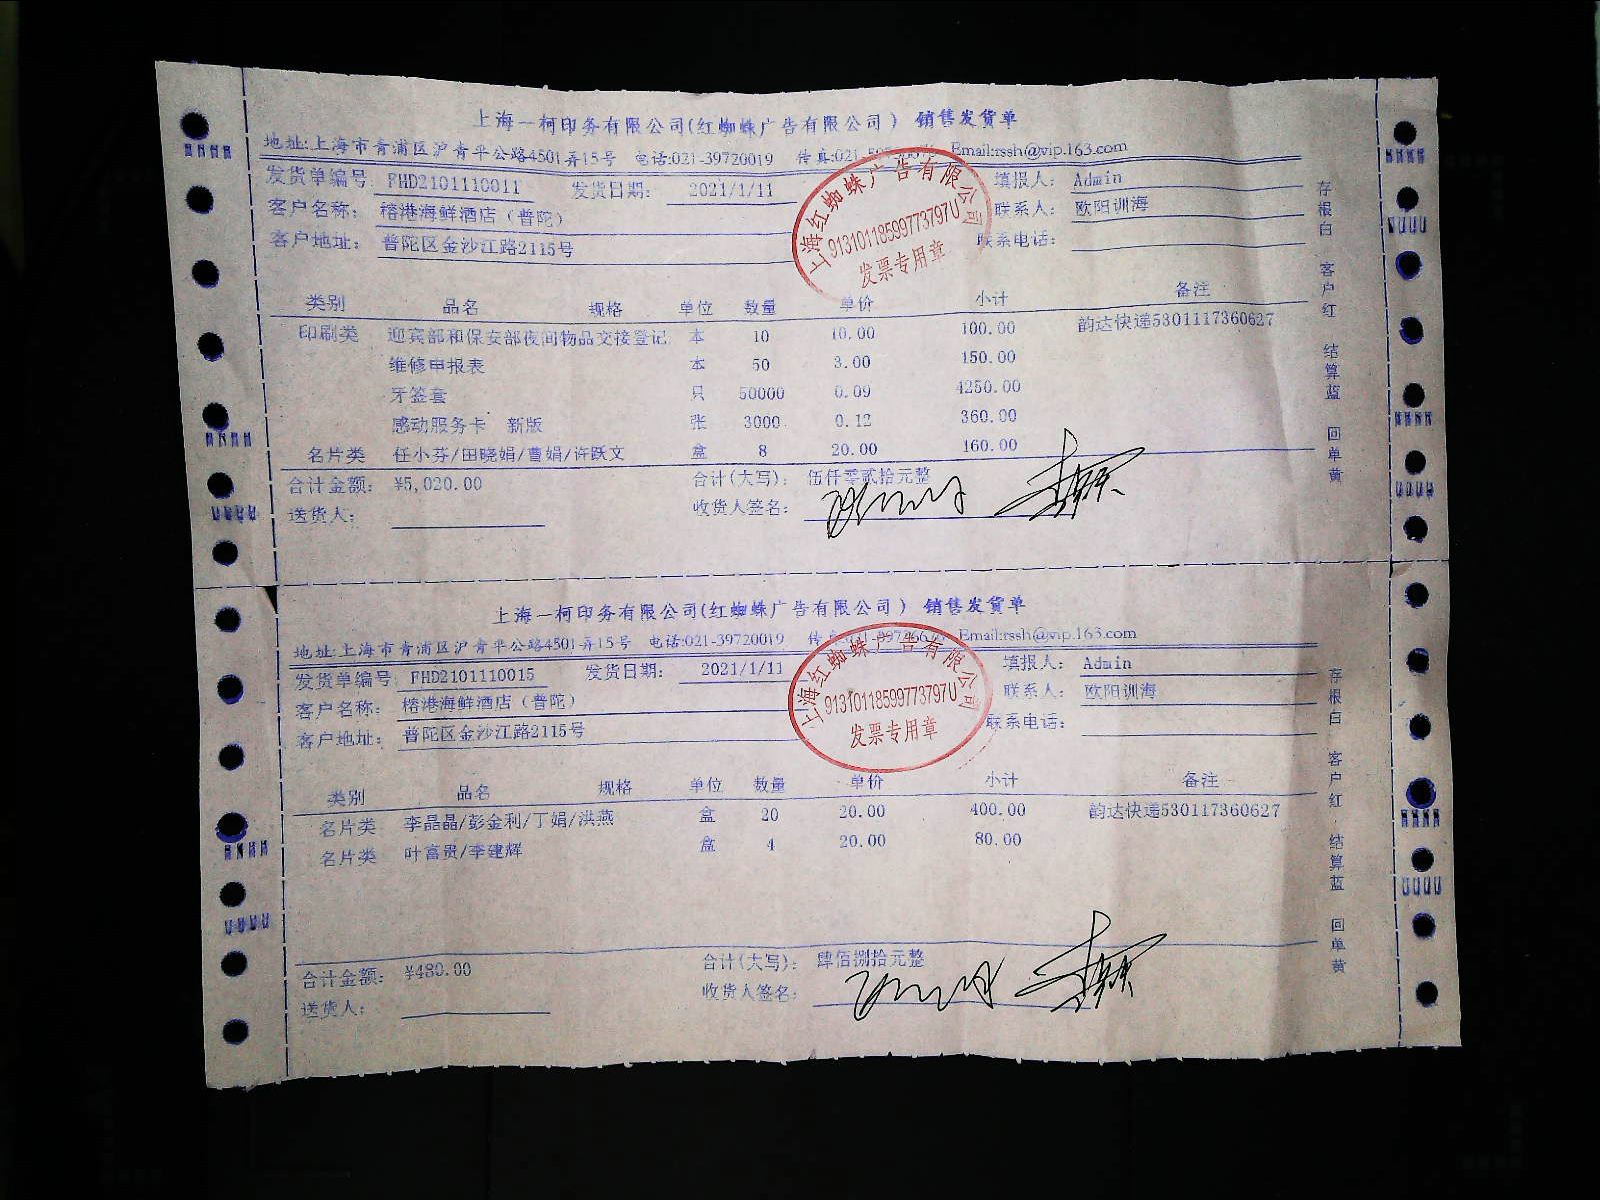 上海一柯印务有限公司(红蜘蛛广告有限公司) 销售发货单
地址:上海市青浦区沪青平公路4501弄15号 电话:021-39720019 传真:021- Email:rssh@vip.163.com
发货单编号 FHD2101110011 发货日期: 2021/1/11 填报人: Admin
客户名称: 榕港海鲜酒店(普陀) 联系人: 欧阳训海
客户地址: 普陀区金沙江路2115号 联系电话:
上海红蜘蛛广告有限公司
91310118599773797U
发票专用章
类别 品名 规格 单位 数量 单价 小计 备注
印刷类 迎宾部和保安部夜间物品交接登记 本 10 10.00 100.00 韵达快递5301117360627
维修申报表 本 50 3.00 150.00
牙签套 只 50000 0.09 4250.00
感动服务卡 新版 张 3000 0.12 360.00
名片类 任小芬/田晓娟/曹娟/许跃文 盒 8 20.00 160.00
合计金额: ¥5,020.00 合计(大写): 伍仟零贰拾元整
送货人: 收货人签名:
存根白 客户红 结算蓝 回单黄
上海一柯印务有限公司(红蜘蛛广告有限公司) 销售发货单
地址:上海市青浦区沪青平公路4501弄15号 电话:021-39720019 传真:021- Email:rssh@vip.163.com
发货单编号 FHD2101110015 发货日期: 2021/1/11 填报人: Admin
客户名称: 榕港海鲜酒店(普陀) 联系人: 欧阳训海
客户地址: 普陀区金沙江路2115号 联系电话:
上海红蜘蛛广告有限公司
91310118599773797U
发票专用章
类别 品名 规格 单位 数量 单价 小计 备注
名片类 李晶晶/彭金利/丁娟/洪燕 盒 20 20.00 400.00 韵达快递530117360627
名片类 叶富贵/李建辉 盒 4 20.00 80.00
合计金额: ¥480.00 合计(大写): 肆佰捌拾元整
送货人: 收货人签名:
存根白 客户红 结算蓝 回单黄